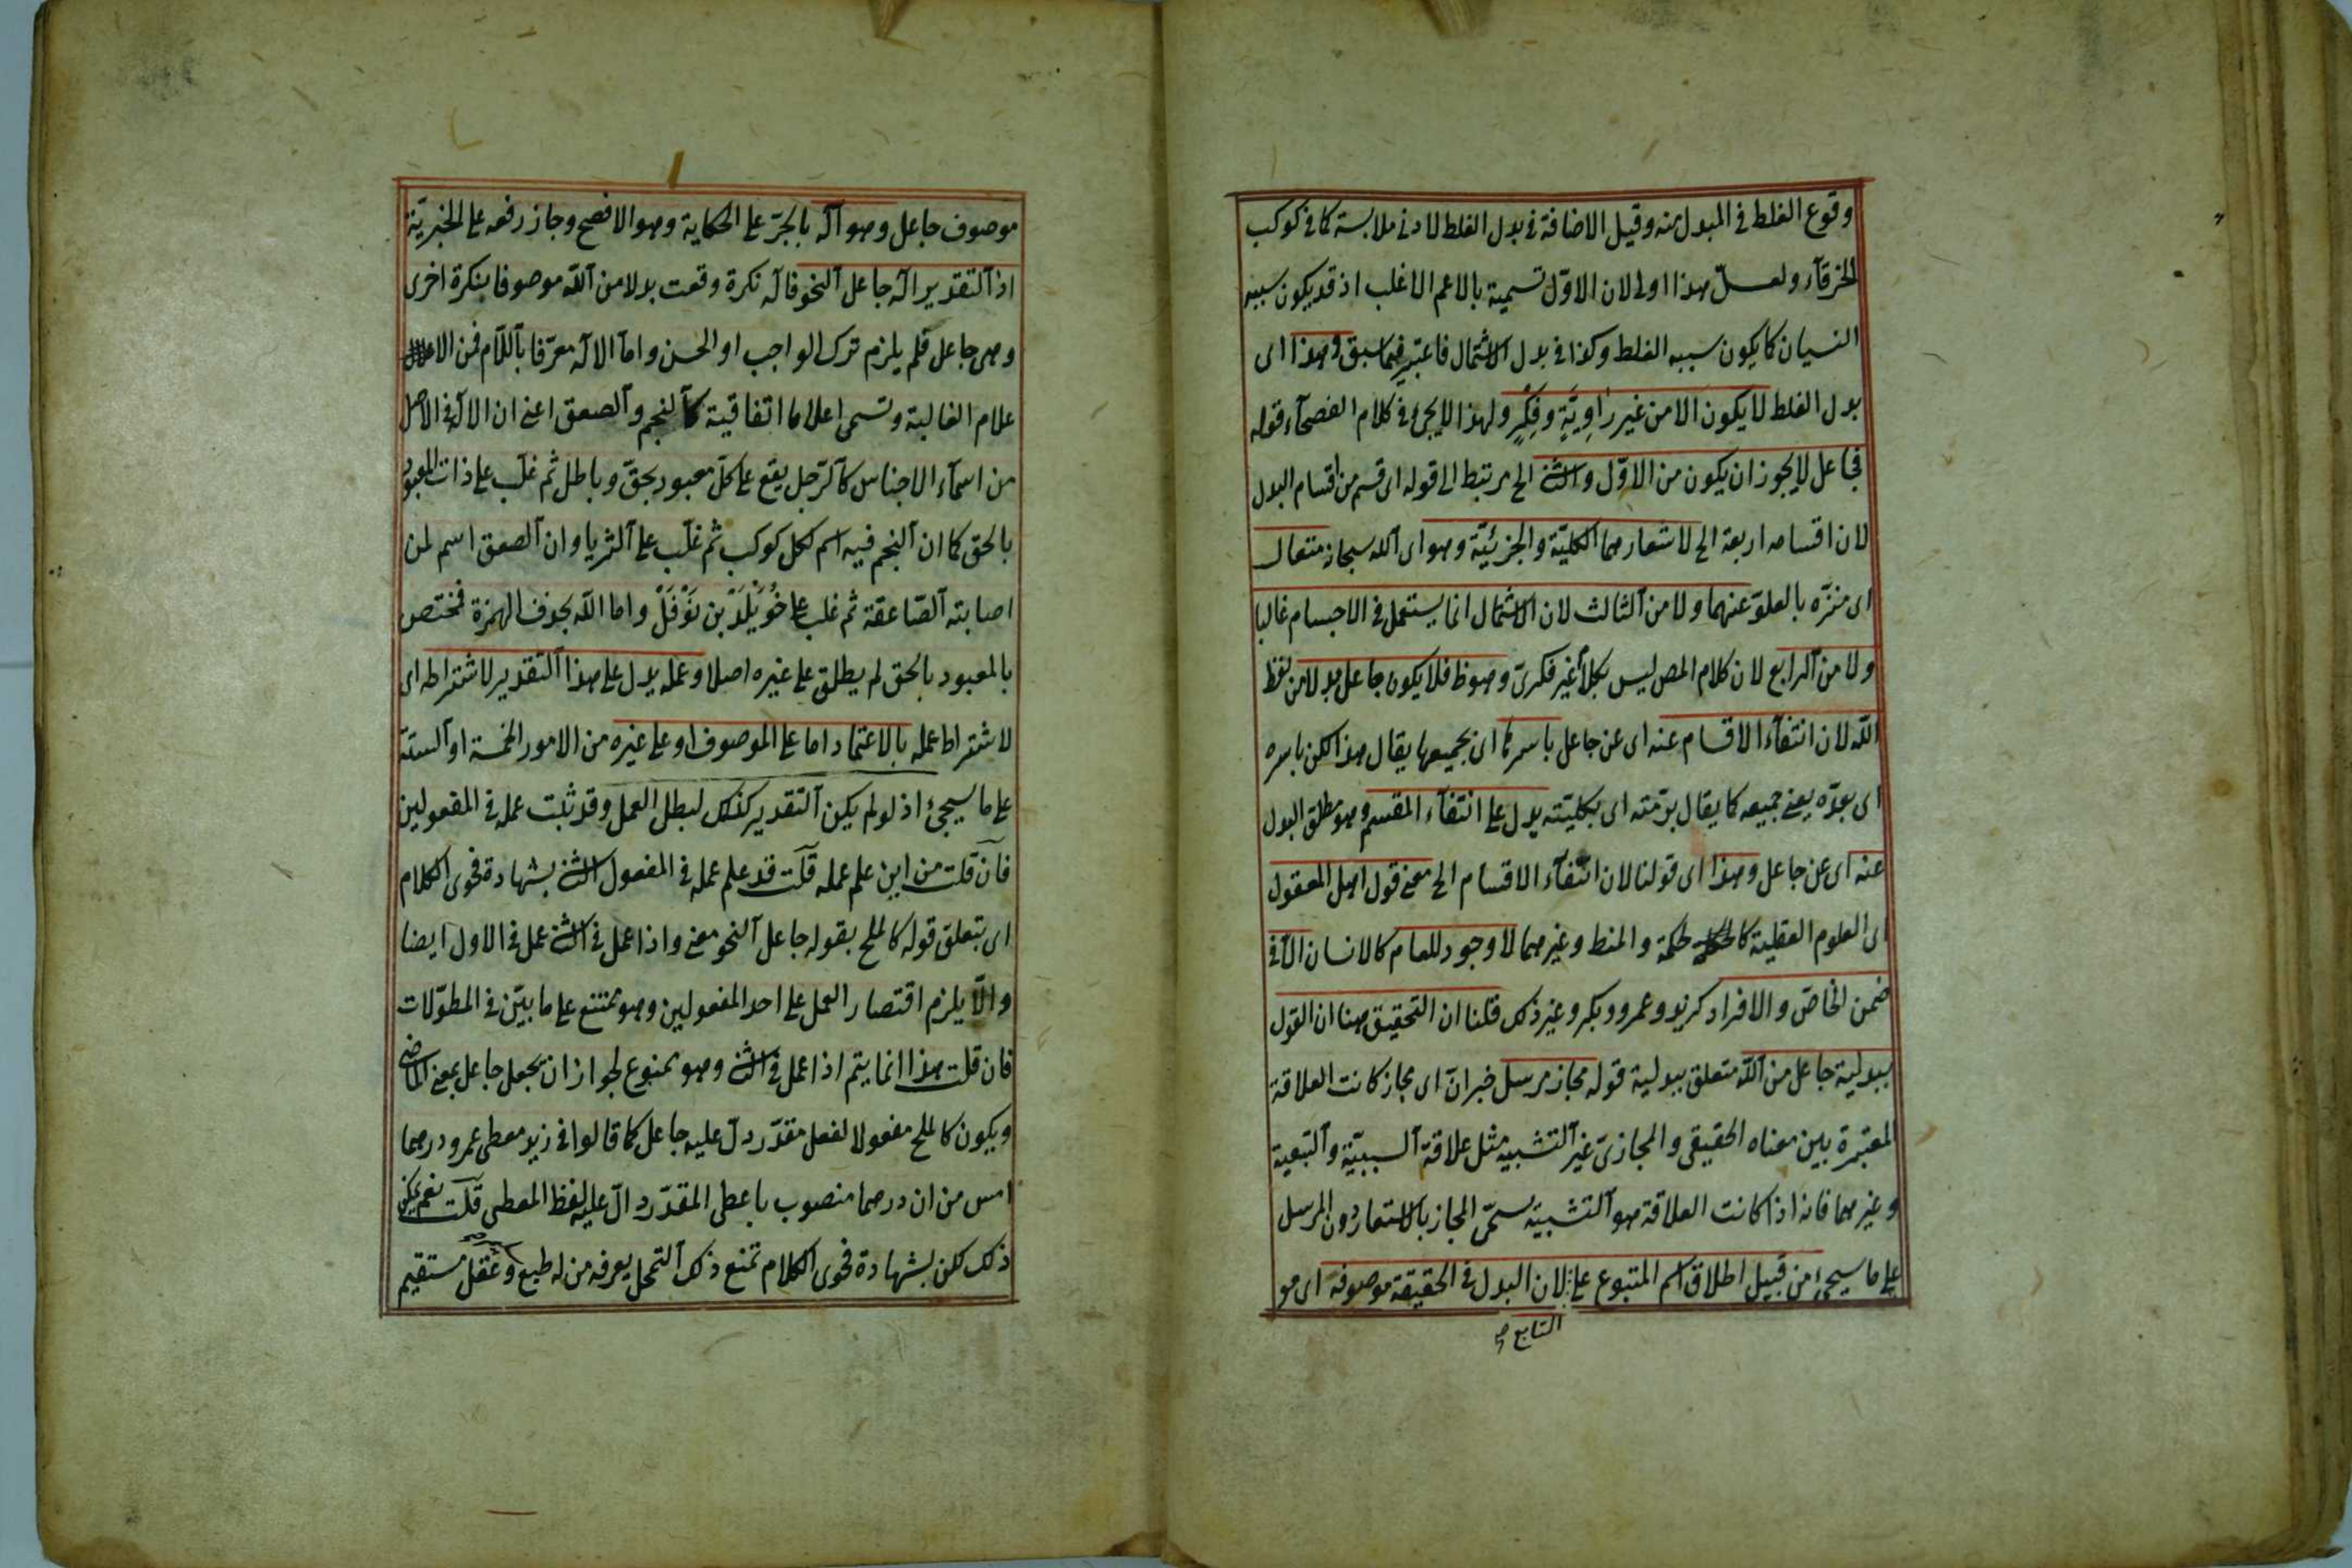 وقوع الغلط في المبدل منه وقيل الاضافة في بدل الغلط لادنى ملابسة كما في كوكب
الخرقآء ولعلّ هذا اولى لان الاوّل تسمية بالاعم الاغلب اذ قد يكون سببه
النسيان كما يكون سببه الغلط وكذا في بدل الاشتمال فاعتبر فيما سبق وهذا اى
بدل الغلط لا يكون الا من غير راوِيَةٍ وفِكْرٍ ولهذا لا يجئ في كلام الفصحآء قوله
فجاعل لا يجوز ان يكون من الاوّل والثنى الخ مرتبط الى قوله اى قسم من اقسام البدل
لان اقسامه اربعة الخ لاشعارهما الكليّة والجزئيّة وهو اى الله سبحانه متعال
اى منزّه بالعلوّ عنهما ولا من الثالث لان الاشتمال انما يستعمل في الاجسام غالبا
ولا من الرابع لان كلام المص ليس بكلا غير فكرىّ وهو ظ فلا يكون جاعل بدلا من لفظ
اللّه لان انتفآء الاقسام عنه اى عن جاعل باسرها اى بجميعها يقال هذا لكن باسره
اى بقدّه يعنى جميعه كما يقال برمّته اى بكليّته يدل على انتفآء المقسم وهو مطلق البدل
عنه اى عن جاعل وهذا اى قولنا لان انتفآء الاقسام الخ معنى قول اهل المعقول
اى العلوم العقلية كالحكمة والمنط وغيرهما لا وجود للعام كالانسان الا في
ضمن الخاصّ والافراد كزيد وعمرو وبكر وغير ذلك قلنا ان التحقيق هنا ان القول
ببدلية جاعل من اللّه متعلق ببدلية قوله مجاز مرسل خبر انّ اى مجاز كانت العلاقة
المعتبرة بين معناه الحقيقى والمجازىّ غير التشبيه مثل علاقة السببيّة والتبعية
وغيرهما فانه اذا كانت العلاقة هو التشبيه يسمّى المجاز بالاستعار دون المرسل
على ما سيجئ من قبيل اطلاق اسم المتبوع على لان البدل في الحقيقة موصوفه اى مو
التابع صح
موصوف جاعل وهو آله بالجرّ على الحكاية وهو الافصح وجاز رفعه على الخبريّة
اذ التقدير اله جاعل النحو فاله نكرة وقعت بدلا من اللّه موصوفا بنكرة اخرى
وهى جاعل فلم يلزم ترك الواجب او الحسن واما الاله معرّفا باللّام فمن الا
علام الغالبة وتسمى اعلاما اتفاقية كالنجم والصعق اعنى ان الاله في الاصل
من اسمآء الاجناس كالرّجل يقع على كلّ معبود بحقّ وباطل ثم غلّب على ذات المعبود
بالحق كما ان النجم فيه اسم لكل كوكب ثم غلّب على الثريا وان الصعق اسم لمن
اصابته الصّاعقة ثم غلب على خُوَيْلَدْ بن نَوْفَلْ واما اللّه بحذف الهمزة فمختص
بالمعبود بالحق لم يطلق على غيره اصلا وعمله يدل على هذا التقدير لاشتراطه اى
لاشتراط عمله بالاعتماد اما على الموصوف او على غيره من الامور الخمسة او الستة
على ما سيجئ اذ لو لم يكن التقدير كذلك لبطل العمل وقد ثبت عمله في المفعولين
فان قلت من اين علم عمله قلت قد علم عمله في المفعول الثنى بشهادة فحوى الكلام
اى بتعلق قوله كالملح بقوله جاعل النحو معنى واذا عمل في الثنى عمل في الاول ايضا
والّا يلزم اقتصار العمل على احد المفعولين وهو ممتنع على ما بيّن في المطوّلات
فان قلت هذا انما يتم اذا عمل في الثنى وهو ممنوع لجواز ان يجعل جاعل بمعنى الماضى
ويكون كالملح مفعولا لفعل مقدّر دلّ عليه جاعل كما قالوا في زيد معطى عمرو درهما
امس من ان درهما منصوب باعطى المقدّر دالّ عليه لفظ المعطى قلت نعم يمكن
ذلك لكن بشهادة فحوى الكلام تمنع ذلك التمحل يعرفه من له طبع وعقل مستقيم